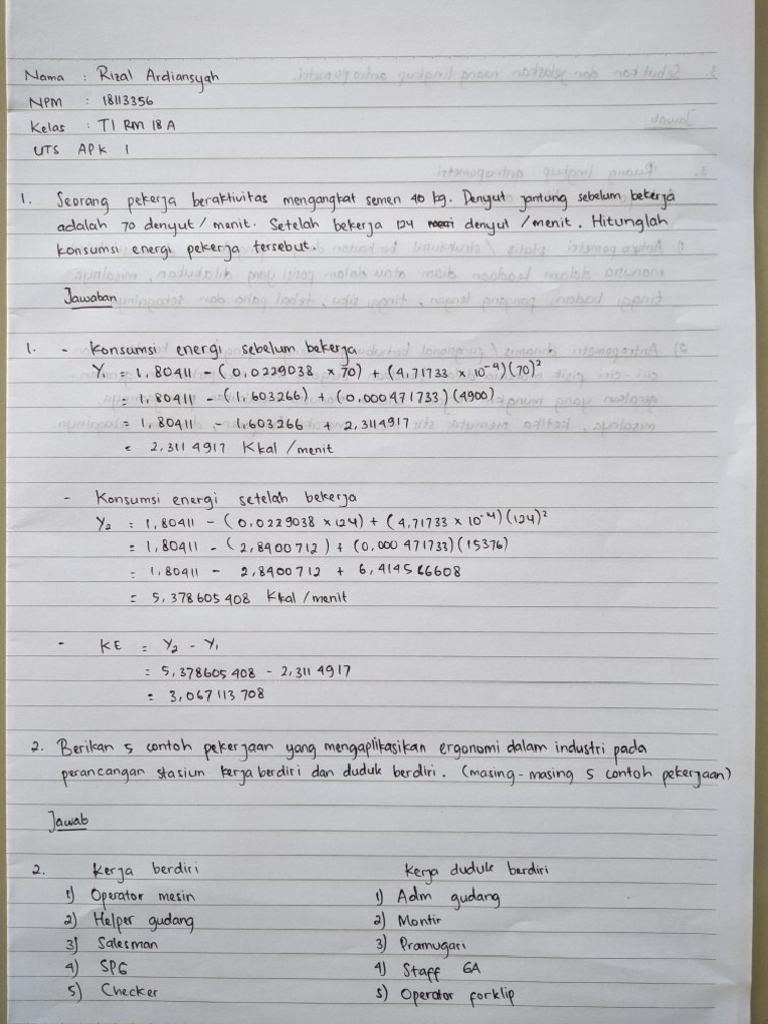 Nama : Rizal Ardiansyah
NPM : 18113356
Kelas : TI RM 18 A
UTS APK 1
1. Seorang pekerja beraktivitas mengangkat semen 40 kg. Denyut jantung sebelum bekerja
adalah 70 denyut / menit. Setelah bekerja 124 denyut / menit. Hitunglah
konsumsi energi pekerja tersebut.
Jawaban
1. - Konsumsi energi sebelum bekerja
Y1 = 1,80411 - (0,0229038 × 70) + (4,71733 × 10⁻⁴)(70)²
= 1,80411 - (1,603266) + (0,000471733)(4900)
= 1,80411 - 1,603266 + 2,3114917
= 2,3114917 Kkal / menit
- Konsumsi energi setelah bekerja
Y2 = 1,80411 - (0,0229038 × 124) + (4,71733 × 10⁻⁴)(124)²
= 1,80411 - (2,8400712) + (0,000471733)(15376)
= 1,80411 - 2,8400712 + 6,414566608
= 5,378605408 Kkal / menit
- KE = Y2 - Y1
= 5,378605408 - 2,3114917
= 3,067113708
2. Berikan 5 contoh pekerjaan yang mengaplikasikan ergonomi dalam industri pada
perancangan stasiun kerja berdiri dan duduk berdiri. (masing-masing 5 contoh pekerjaan)
Jawab
2. Kerja berdiri Kerja duduk berdiri
1) Operator mesin 1) Adm gudang
2) Helper gudang 2) Montir
3) Salesman 3) Pramugari
4) SPG 4) Staff GA
5) Checker 5) Operator forklip